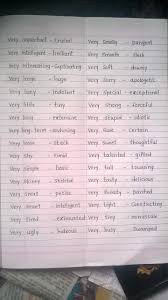 Very important - crucial
Very intelligent - brilliant
Very interesting - captivating
Very large - huge
Very lazy - indolent
Very little - tiny
Very long - extensive
Very long-term - enduring
Very loose - slack
Very shy - timid
Very simple - basic
Very skinny - skeletal
Very small - petite
Very smart -
Very tired - exhausted
Very ugly - hideous
Very smelly - pungent
Very smooth - sleek
Very soft - downy
Very sorry - apologetic
Very special - exceptional
Very strong - forceful
Very stupid - idiotic
Very sweet - thoughtful
Very talented - gifted
Very tall - towering
Very tasty - delicious
Very - parched
Very tight - constricting
Very tiny - minuscule
Very busy - Swamped